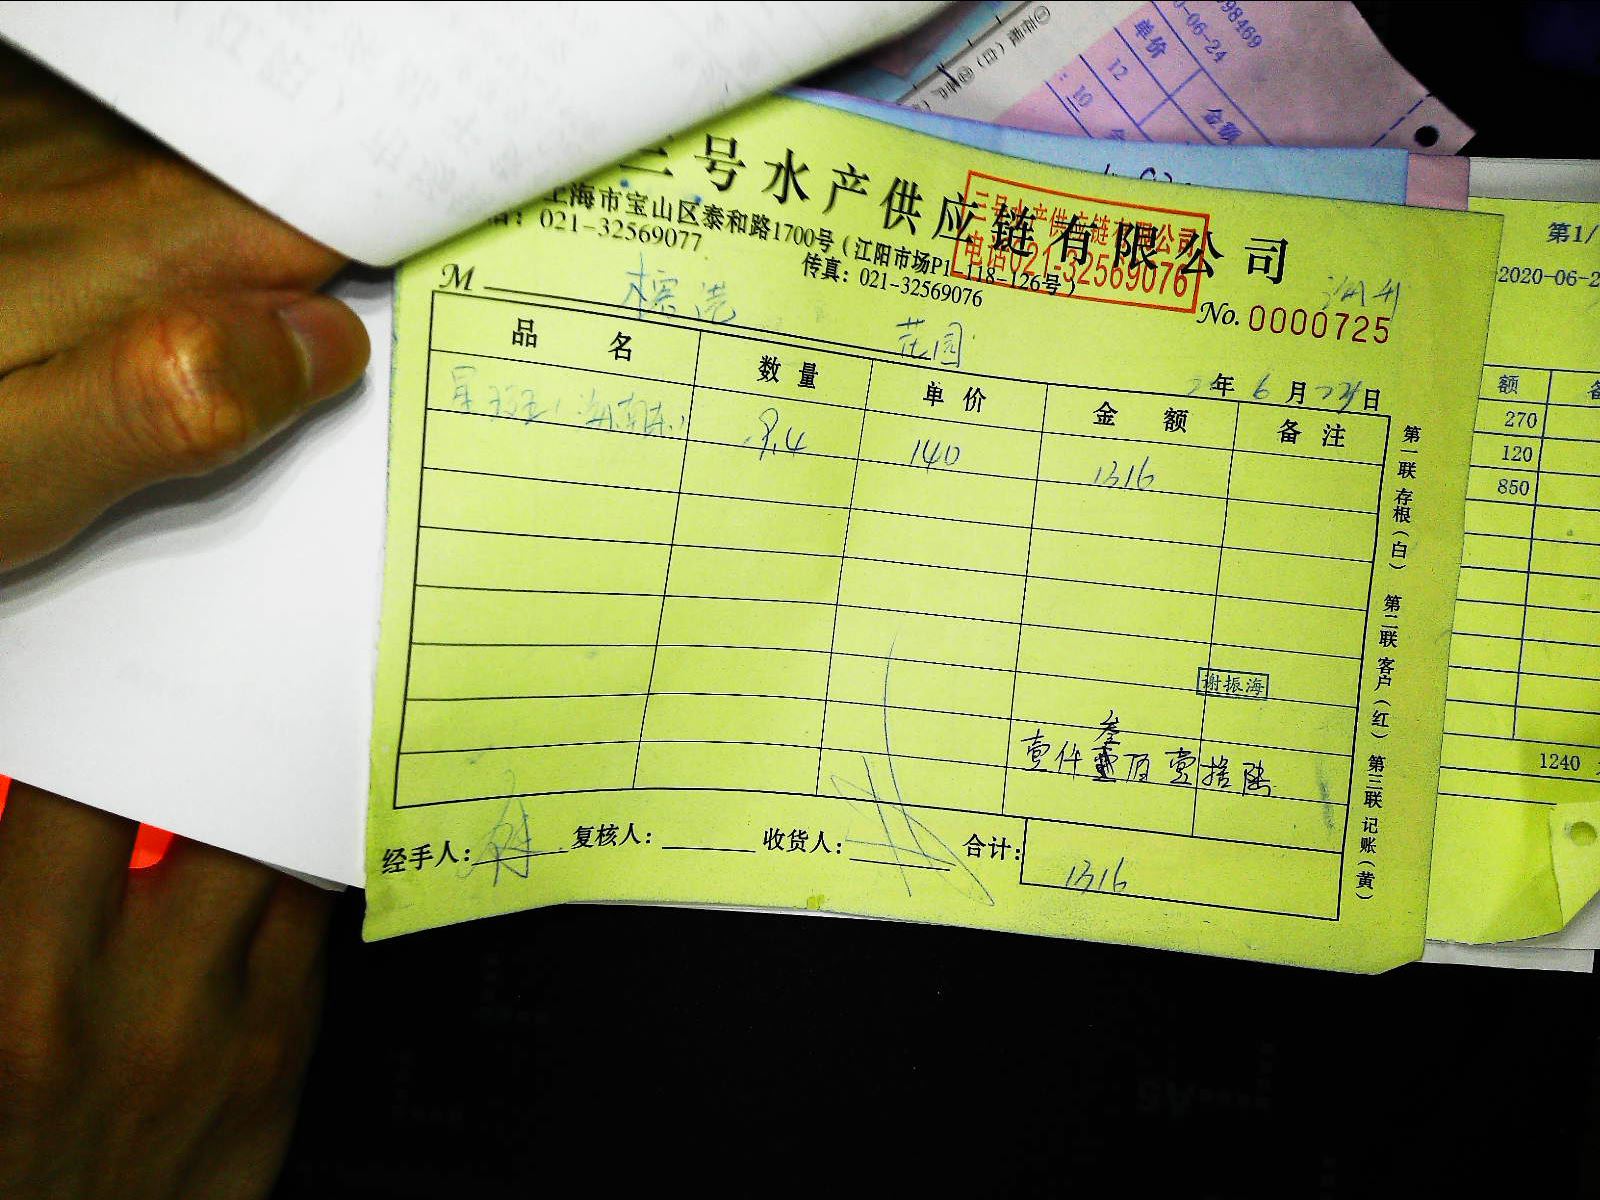 三号水产供应链有限公司
上海市宝山区泰和路1700号（江阳市场P1-118-126号）
：021-32569077
传真：021-32569076
三号水产供应链有限公司
电话021-32569076
M
No.0000725
湖州
花园
年 6 月 23 日
品 名 数 量 单 价 金 额 备 注
9.4 140 1316
谢振海
壹仟叁佰壹拾陆
经手人： 复核人： 收货人： 合计：
1316
第一联 存根（白） 第二联 客户（红） 第三联 记账（黄）
98469
0-06-24
单价
金额
12
10
第1/
2020-06-2
额
270
120
850
1240